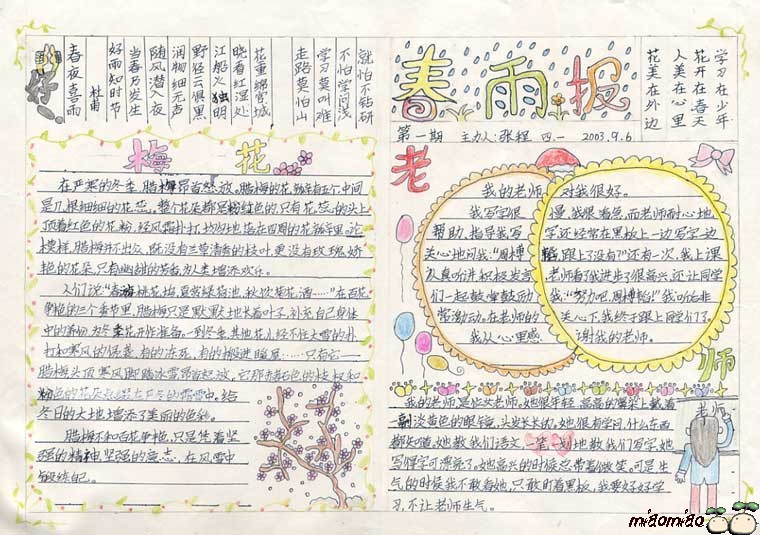 春夜喜雨
杜甫
好雨知时节
当春乃发生
随风潜入夜
润物细无声
野径云俱黑
江船火独明
晓看红湿处
花重锦官城
走路莫怕山
学习莫叫难
不怕学问浅
就怕不钻研
梅 花
在严寒的冬季,腊梅昂首怒放。腊梅的花
是几根细细的花蕊。整个花朵都是粉红色的,只有花蕊的头上
顶着红色的花粉,
模样,腊梅并不出众,既没有兰莹清香的枝叶,更没有玫瑰娇
艳的花朵,只有幽甜的芳香为人类增添欢乐。
人们说“春
争艳的三个季节里,腊梅只是默默地长着叶子,补充自己身体
中的养份,为冬季花开作准备。一到冬季,其他花儿经不住大雪的扑
打和寒风的侵袭,有的冻死,有的搬进暖屋……只有它——
腊梅头顶寒风脚踏冰雪昂首怒放,
冬日的大地增添了美丽的色彩。
腊梅不和百花争艳,只是凭着坚
强的精神,坚强的意志,在风雪中
锻练自己。
春雨报
第一期 主办人:张程 四.一 2003.9.6
学习在少年
花开在春天
人美在心里
花美在外边
老
师
我的老师对我很好。
我写字很慢,我很着急,而老师耐心地
帮助,指导我写字,还经常在黑板上一边写字一边
关心地问我:“周博韬,跟上没有?”还有一次,我上课
认真听讲积极发言,老师看了我进步了很高兴,还让同学
们一起鼓掌鼓励我:“努力吧,周博韬!”我听了非
常激动。在老师的关心下,我终于跟上同学们了。
我从心里感谢我的老师。
我的老师,是位女老师。她很年轻,高高的鼻梁上戴着
一副淡黄色的眼镜,头发长长的。她很有学问,什么东西
都知道。她教我们语文,一笔一划地教我们写字,她
写得字可漂亮了。她高兴的时候总带着微笑。可是生
气的时候我不敢看她,只敢盯着黑板。我要好好学
习,不让老师生气。
老师
miaomiao